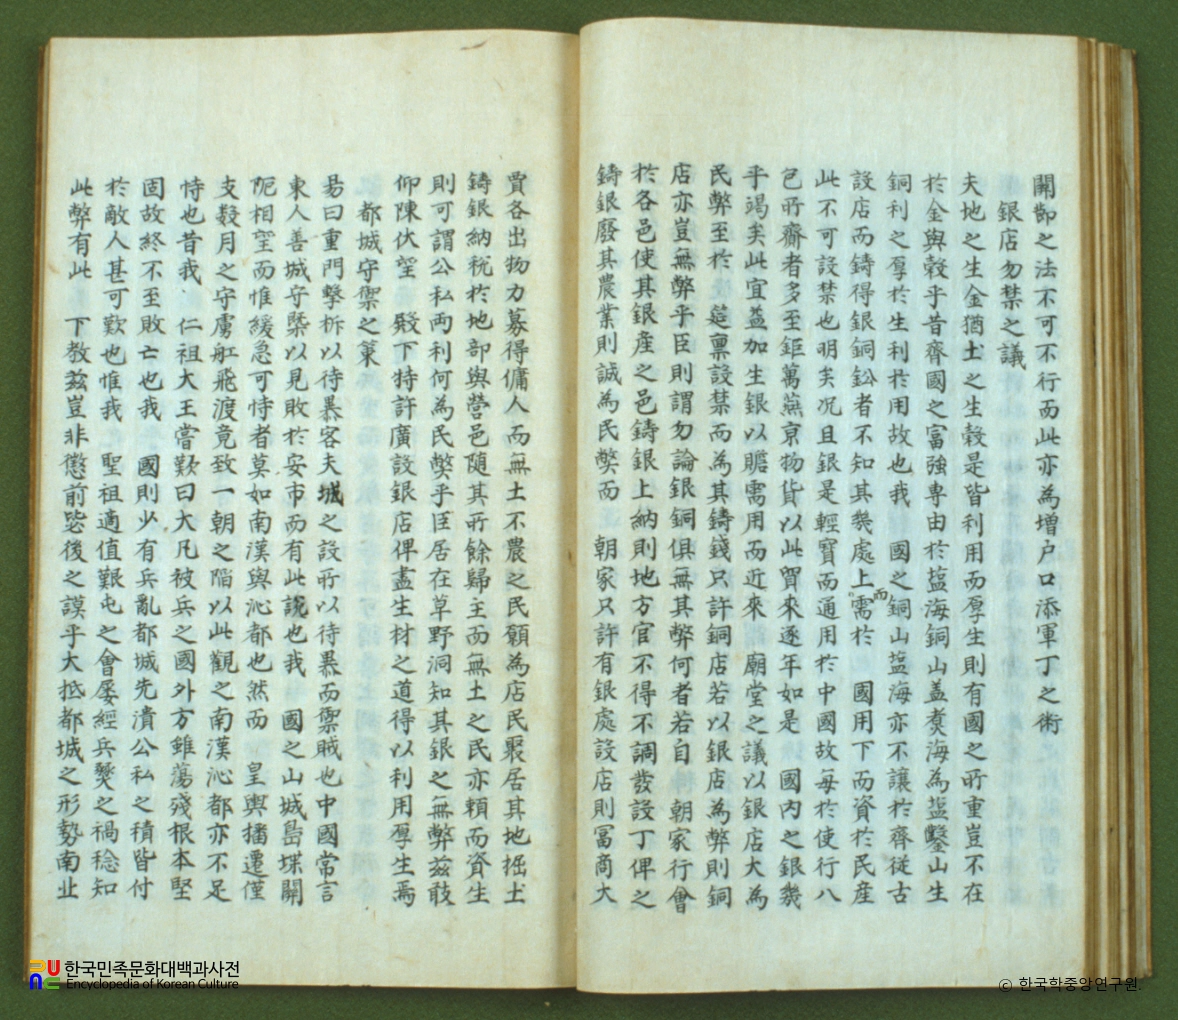 開節之法不可不行而此亦為增戶口添軍丁之術
銀店勿禁之議
夫地之生金猶土之生穀是皆利用而厚生則有國之所重豈不在
於金與穀乎昔齊國之富強專由於塩海銅山盖煑海為塩鑿山生
銅利之厚於生利於用故也我 國之銅山塩海亦不讓於齊從古
設店而鑄得銀銅鈆者不知其幾處上需而於 國用下而資於民産
此不可設禁也明矣况且銀是輕寶而通用於中國故每於使行八
包所齎者多至鉅萬燕京物貨以此貿來逐年如是 國內之銀幾
乎竭矣此宜益加生銀以贍需用而近來 廟堂之議以銀店大為
民弊至於 筵稟設禁而為其鑄錢只許銅店若以銀店為弊則銅
店亦豈無弊乎臣則謂勿論銀銅俱無其弊何者若自 朝家行會
於各邑使其銀產之邑鑄銀上納則地方官不得不調發設丁俾之
鑄銀廢其農業則誠為民弊而 朝家只許有銀處設店則富商大
賈各出物力募得傭人而無土不農之民願為店民聚居其地掘土
鑄銀納稅於地部與營邑隨其所餘歸主而無土之民亦賴而資生
則可謂公私両利何為民弊乎臣居在草野洞知其銀之無弊茲敢
仰陳伏望 殿下特許廣設銀店俾盡生材之道得以利用厚生焉
都城守禦之策
易曰重門擊柝以待暴客夫城之設所以待暴而禦賊也中國常言
東人善城守槩以見敗於安市而有此說也我 國之山城島堞關
阨相望而惟緩急可恃者莫如南漢與沁都也然而 皇輿播遷僅
支數月之守虜舡飛渡竟致一朝之陷以此觀之南漢沁都亦不足
恃也昔我 仁祖大王嘗歎曰大凡被兵之國外方雖蕩殘根本堅
固故終不至敗亡也我 國則少有兵亂都城先潰公私之積皆付
於敵人甚可歎也惟我 聖祖適值艱屯之會屡經兵燹之禍稔知
此弊有此 下教茲豈非懲前毖後之謨乎大抵都城之形勢南北
한국민족문화대백과사전
Encyclopedia of Korean Culture
© 한국학중앙연구원.